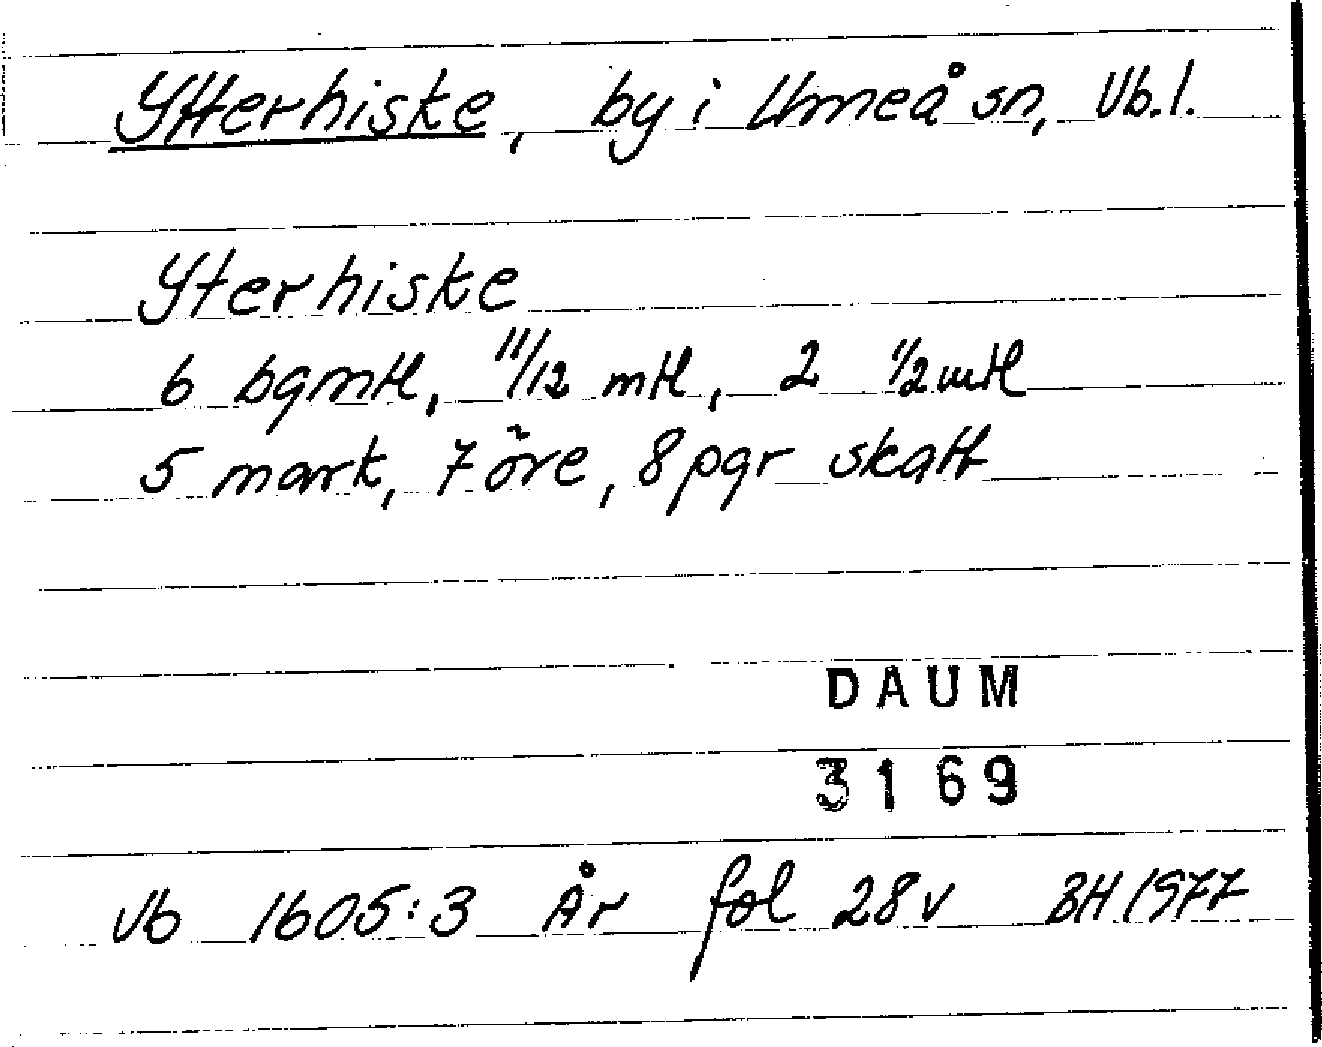 Ytterhiske, by i Umeå sn, Vb.l.
Yterhiske
6 bgmtl, 11/12 mtl, 2 1/2 mtl
5 mark, 7 öre, 8 pgr skatt
DAUM
3169
Vb 1605:3 År fol 28v BH 1977